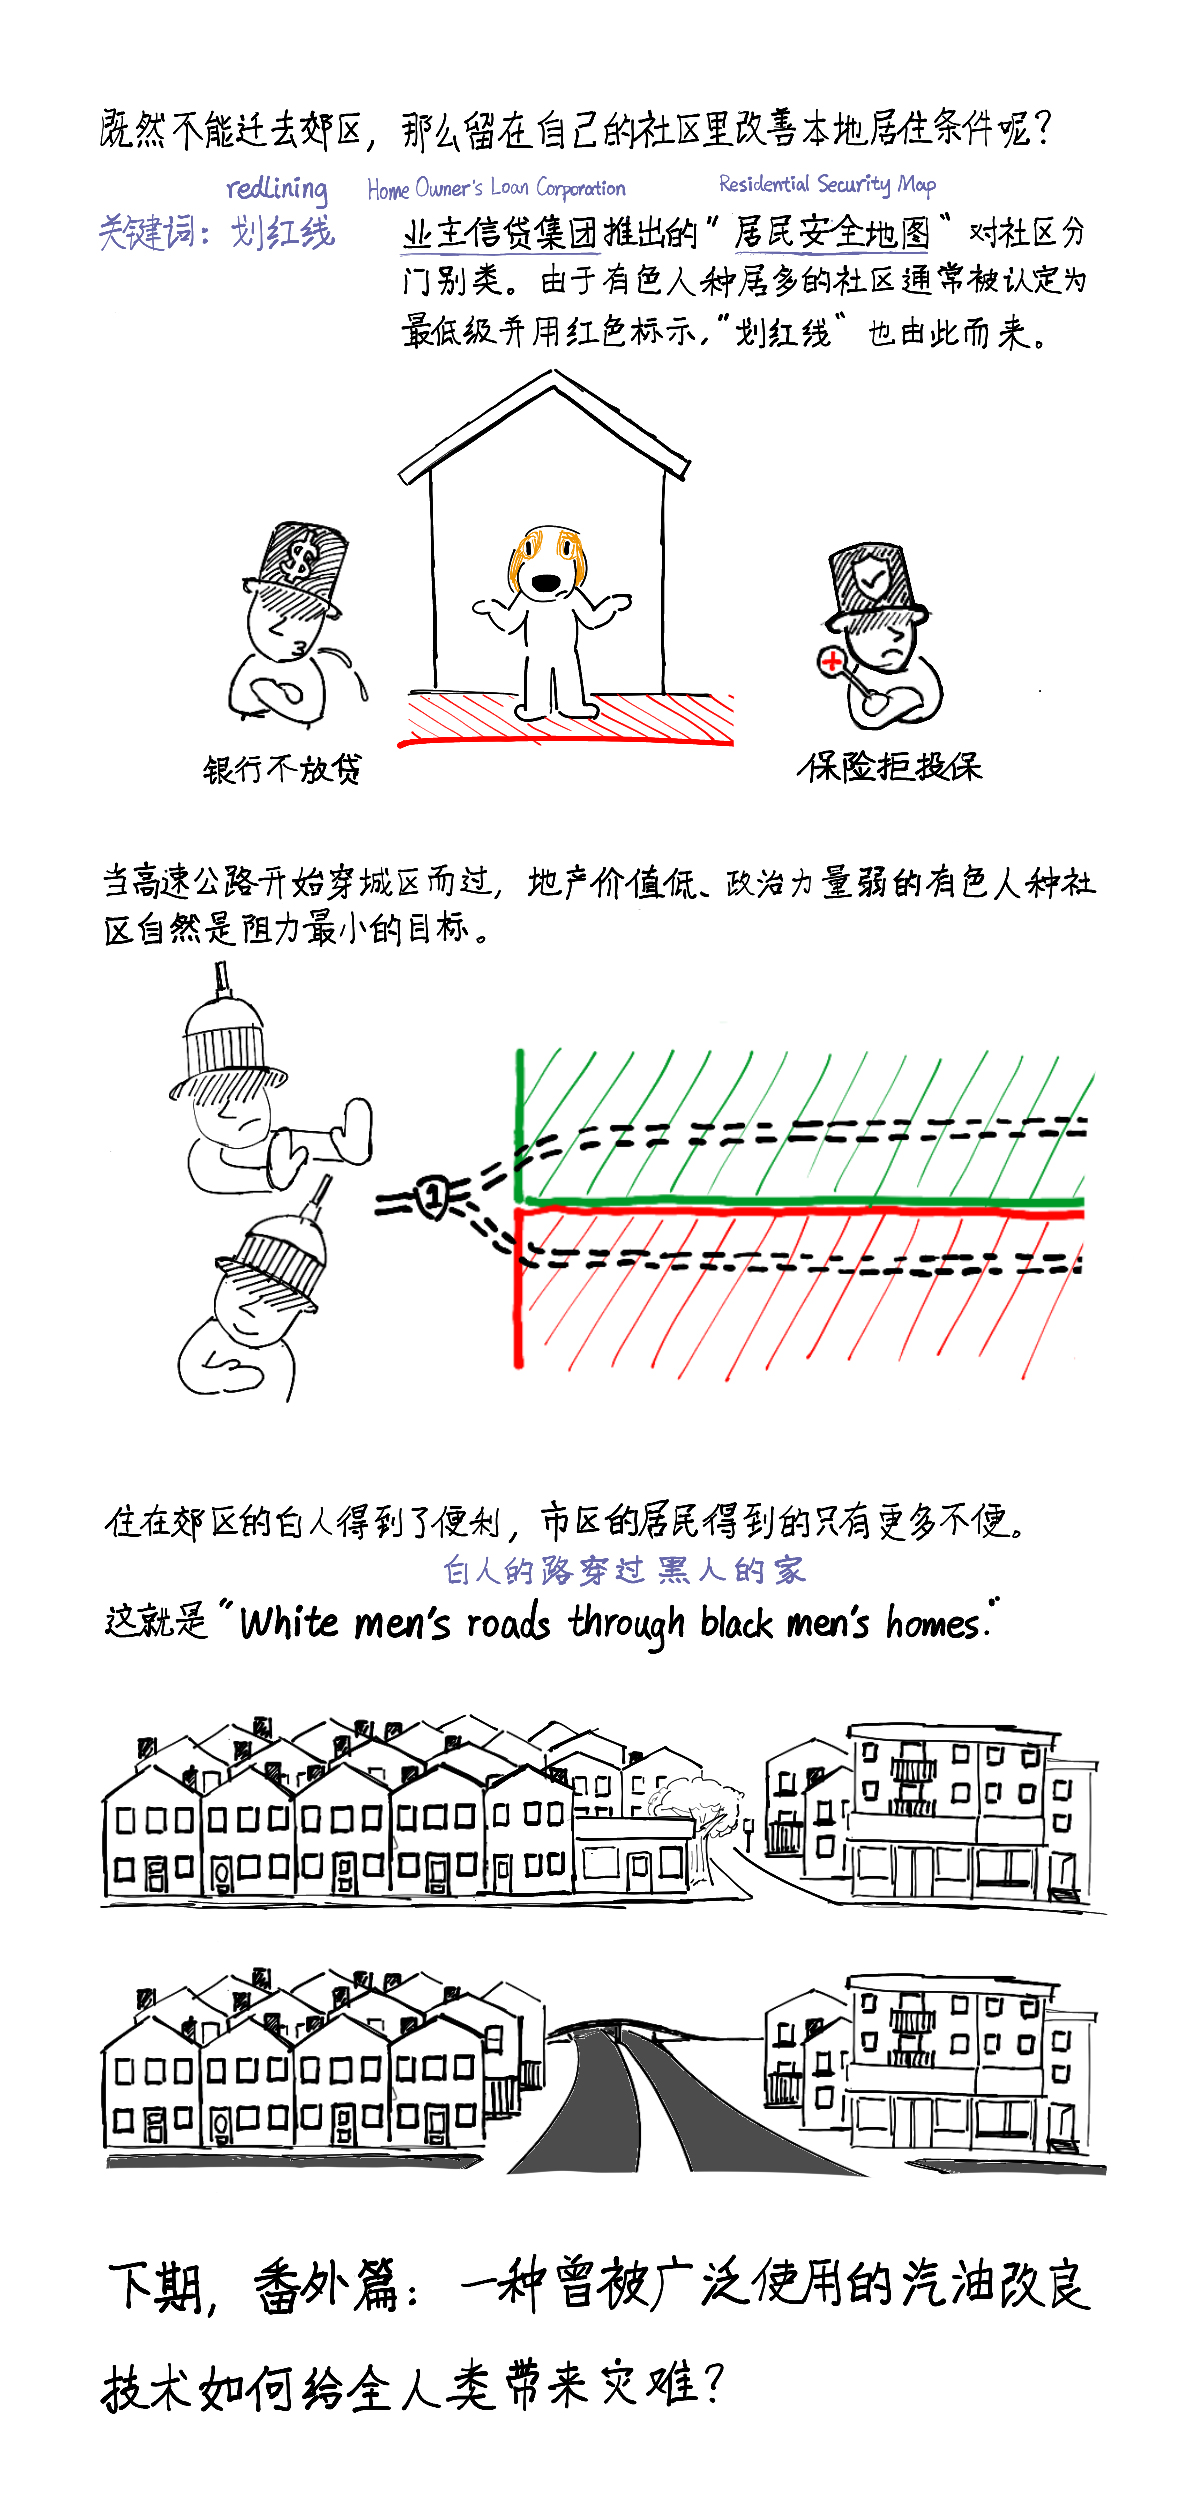 既然不能迁去郊区，那么留在自己的社区里改善本地居住条件呢？
redlining Home Owner's Loan Corporation Residential Security Map
关键词：划红线 业主信贷集团推出的“居民安全地图”对社区分
门别类。由于有色人种居多的社区通常被认定为
最低级并用红色标示，“划红线”也由此而来。
$
银行不放贷
保险拒投保
当高速公路开始穿城区而过，地产价值低、政治力量弱的有色人种社
区自然是阻力最小的目标。
1
住在郊区的白人得到了便利，市区的居民得到的只有更多不便。
白人的路穿过黑人的家
这就是“White men's roads through black men's homes.”
下期，番外篇：一种曾被广泛使用的汽油改良
技术如何给全人类带来灾难？